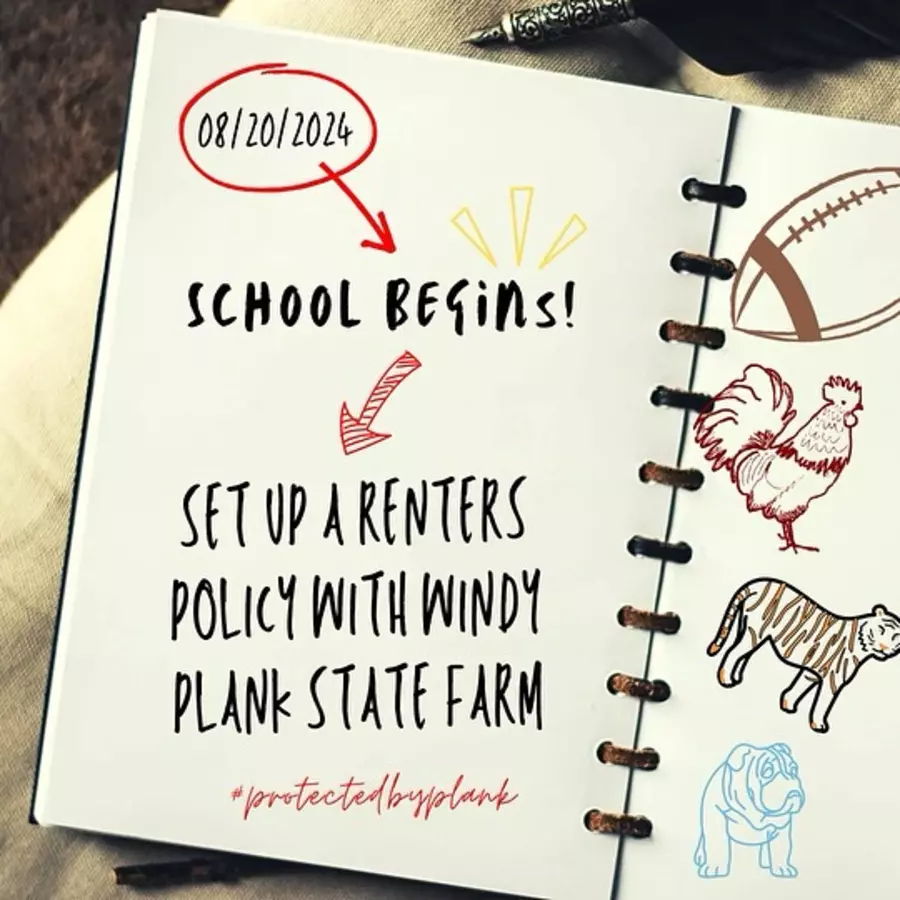 08/20/2024
SCHOOL BEGinS!
SET UP A RENTERS
POLICY WITH WINDY
PLANK STATE FARM
#protectedbyplank